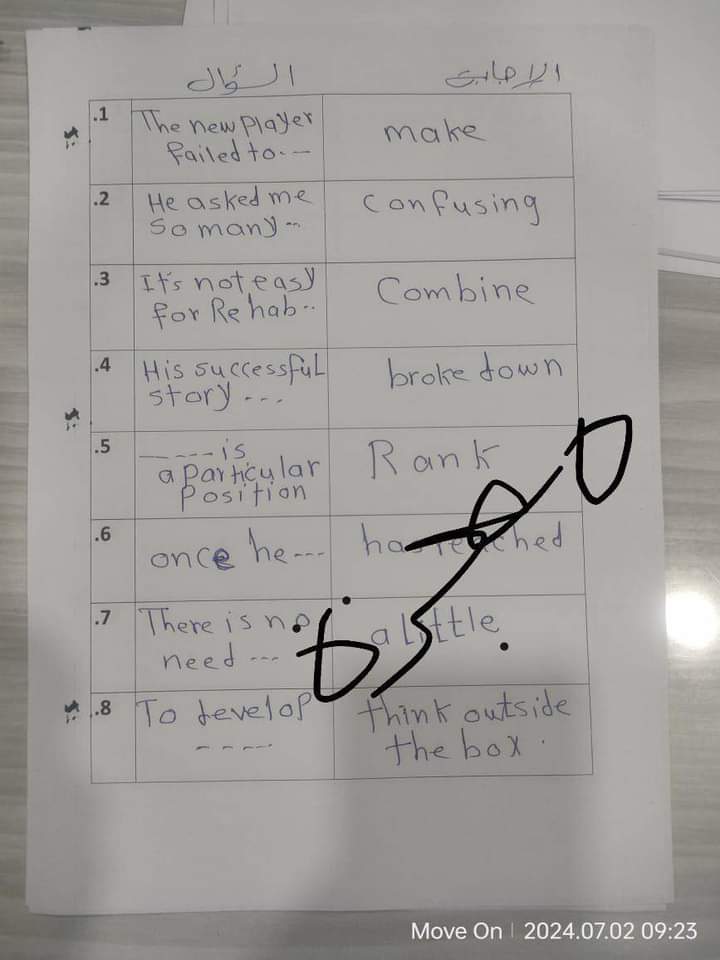 السؤال
الإجابة
.1
The new player
failed to. --
make
.2
He asked me
so many--
confusing
.3
It's not easy
for Rehab..
Combine
.4
His successful
story ---
broke down
.5
----- is
a particular
position
Rank
.6
once he ---
has reached
.7
There is no
need ---
a little
.8
To develop
----
think outside
the box.
Move On | 2024.07.02 09:23